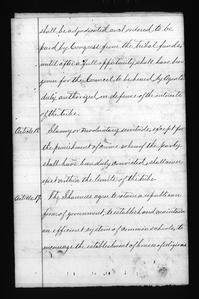 shall be adjudicated and ordered to be
paid by Congress from the tribal funds
until after a full opportunity shall have been
given for the Council to be heard by Agents
duly authorized in defence of the interests
of the tribe.
Article 18. Slavery or involuntary servitude, except for
the punishment of crime whereof the party
shall have been duly convicted, shall never
exist within the limits of the tribe.
Article 19. The Shawnees agree to retain a republican
form of government, to establish and maintain
an efficient system of common schools, to
encourage the establishment of houses of religious